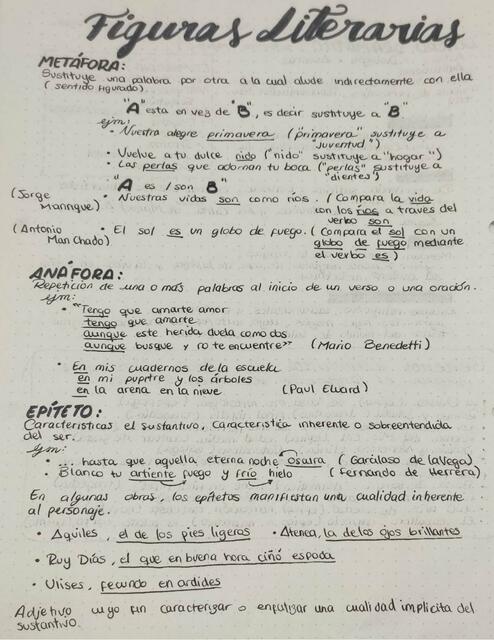 Figuras Literarias
METÁFORA:
Sustituye una palabra por otra a la cual alude indirectamente con ella
(sentido figurado).
"A" esta en vez de "B", es decir sustituye a "B".
ejm:
• Nuestra alegre primavera ("primavera" sustituye a
"juventud")
• Vuelve a tu dulce nido ("nido" sustituye a "hogar")
• Las perlas que adornan tu boca ("perlas" sustituye a
"dientes")
"A es / son B"
(Jorge Manrique) • Nuestras vidas son como ríos. (Compara la vida
con los ríos a través del
verbo son
(Antonio Man Chado) • El sol es un globo de fuego. (Compara el sol con un
globo de fuego mediante
el verbo es)
ANÁFORA:
Repetición de una o más palabras al inicio de un verso o una oración.
ejm:
• "Tengo que amarte amor
tengo que amarte
aunque este herida duela como dos
aunque busque y no te encuentre" (Mario Benedetti)
• En mis cuadernos de la escuela
en mi pupitre y los árboles
en la arena en la nieve (Paul Eluard)
EPÍTETO:
Características el sustantivo, característica inherente o sobreentendida
del ser.
ejm:
• ... hasta que aquella eterna noche osaira (Garcilaso de la Vega)
• Blanco tu artiente fuego y frío hielo (Fernando de Herrera)
En algunas obras, los epítetos manifiestan una cualidad inherente
al personaje.
• Aquiles, el de los pies ligeras • Atenea, la delos ojos brillantes
• Ruy Días, el que en buena hora ciñó espada
• Ulises, fecundo en ardides
Adjetivo cuyo fin caracterizar o enfatizar una cualidad implicita del
sustantivo.